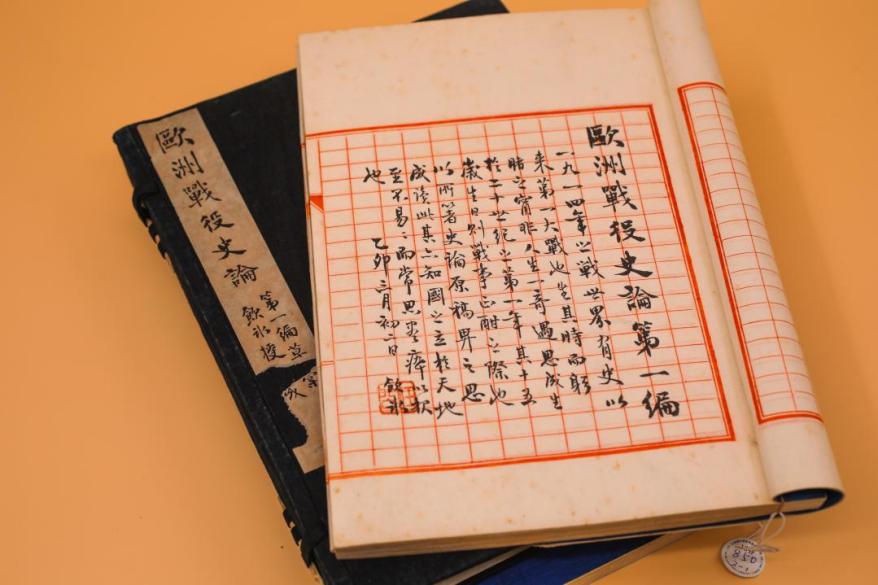 歐洲戰役史論第一編
一九一四年之戰世界有史以
來第一大戰也生其時而躬
睹之寧非人生一奇遇思成生
於二十世紀之第一年其十五
歲生日則戰事正酣之際也
以所著史論原稿畀之思
成讀此其亦知國之立於天地
至不易〻而常思盡瘁以報
也
乙卯三月初二日 飲冰
歐洲戰役史論
第一編草
飲冰授
850
2-1